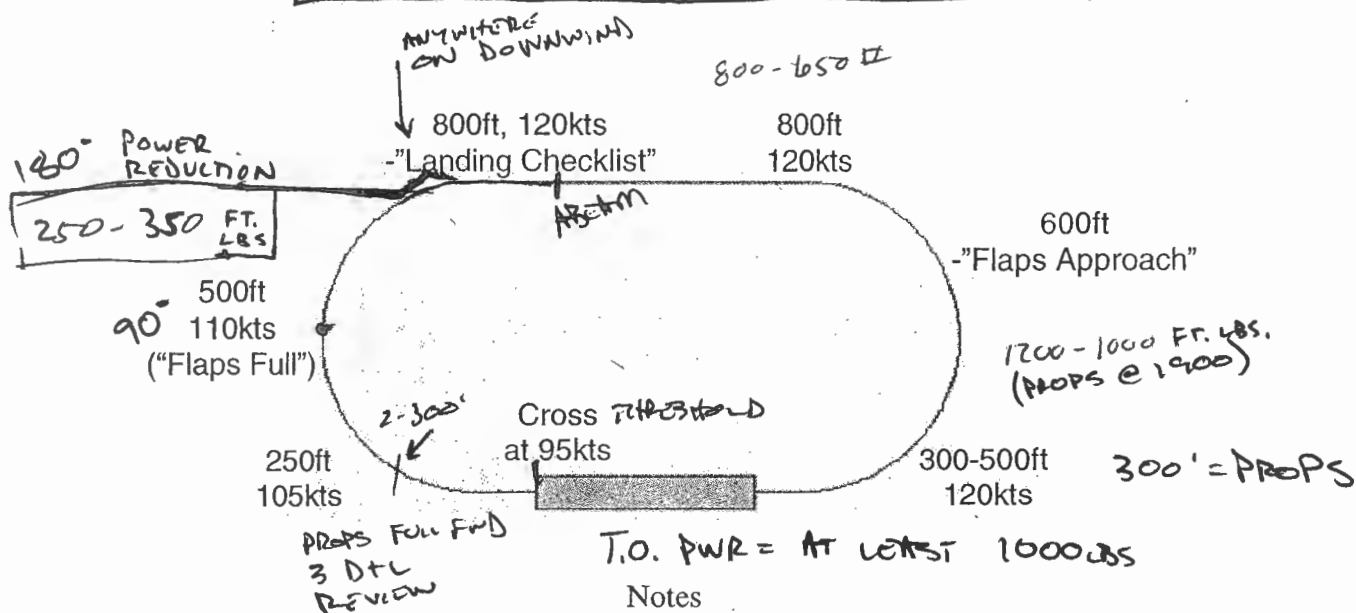 ANYWHERE
ON DOWNWIND
800-650
800ft, 120kts
-"Landing Checklist"
800ft
120kts
180° POWER
REDUCTION
250-350 FT.
LBS
ABEAM
600ft
-"Flaps Approach"
90°
500ft
110kts
("Flaps Full")
1200-1000 FT. LBS.
(PROPS @ 1900)
2-300'
Cross THRESHOLD
at 95kts
250ft
105kts
300-500ft
120kts
300' = PROPS
PROPS FULL FWD
3 D+L
REVIEW
T.O. PWR = AT LEAST 1000LBS
Notes